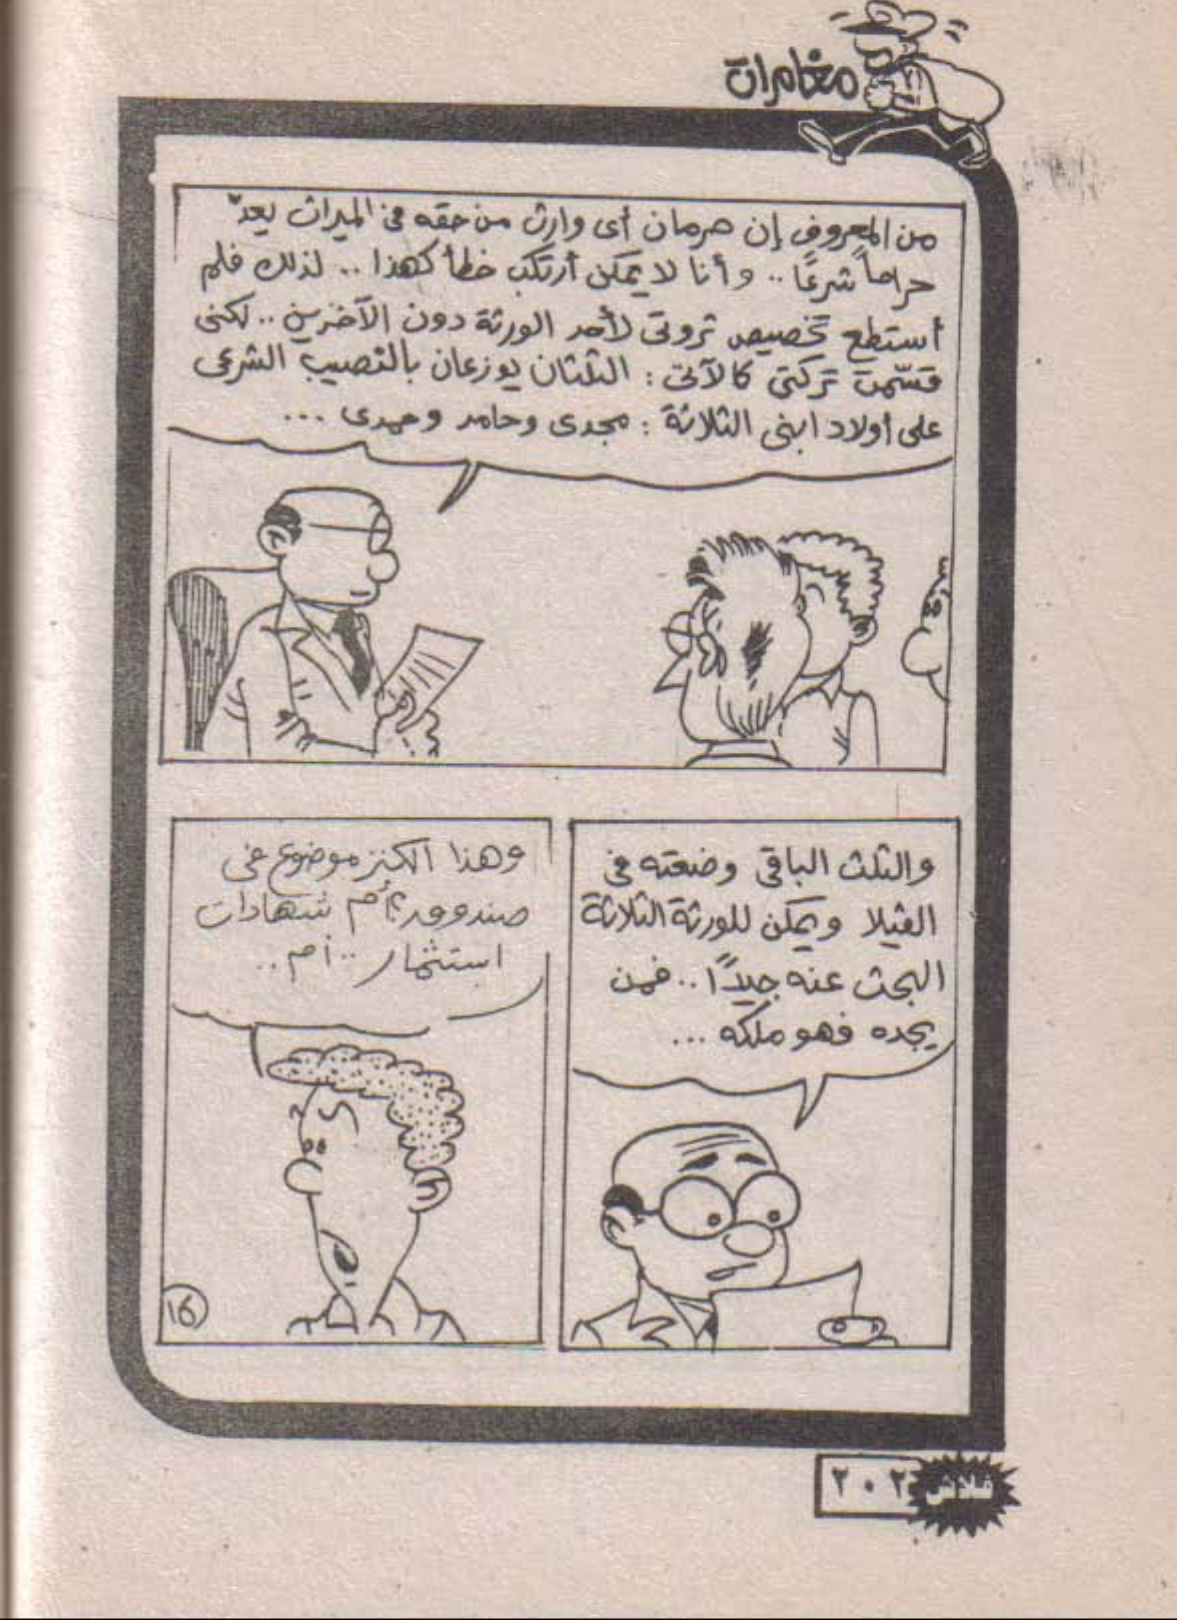 مغامرات
من المعروف إن حرمان أى وارث من حقه فى الميراث يعدّ
حراماً شرعًا .. وأنا لا يمكن أرتكب خطأ كهذا .. لذلك فلم
أستطع تخصيص ثروتى لأحد الورثة دون الآخرين .. لكنى
قسّمت تركتى كالآتى : الثلثان يوزعان بالنصيب الشرعى
على أولاد ابنى الثلاثة : مجدى وحامد وحمدى ...
والثلث الباقى وضعته فى
الڤيلا ويمكن للورثة الثلاثة
البحث عنه جيدًا .. فمن
يجده فهو ملكه ...
وهذا الكنز موضوع فى
صندوق ؟ أم شهادات
استثمار .. أم ..
١٦
فلاش
٢٠٢